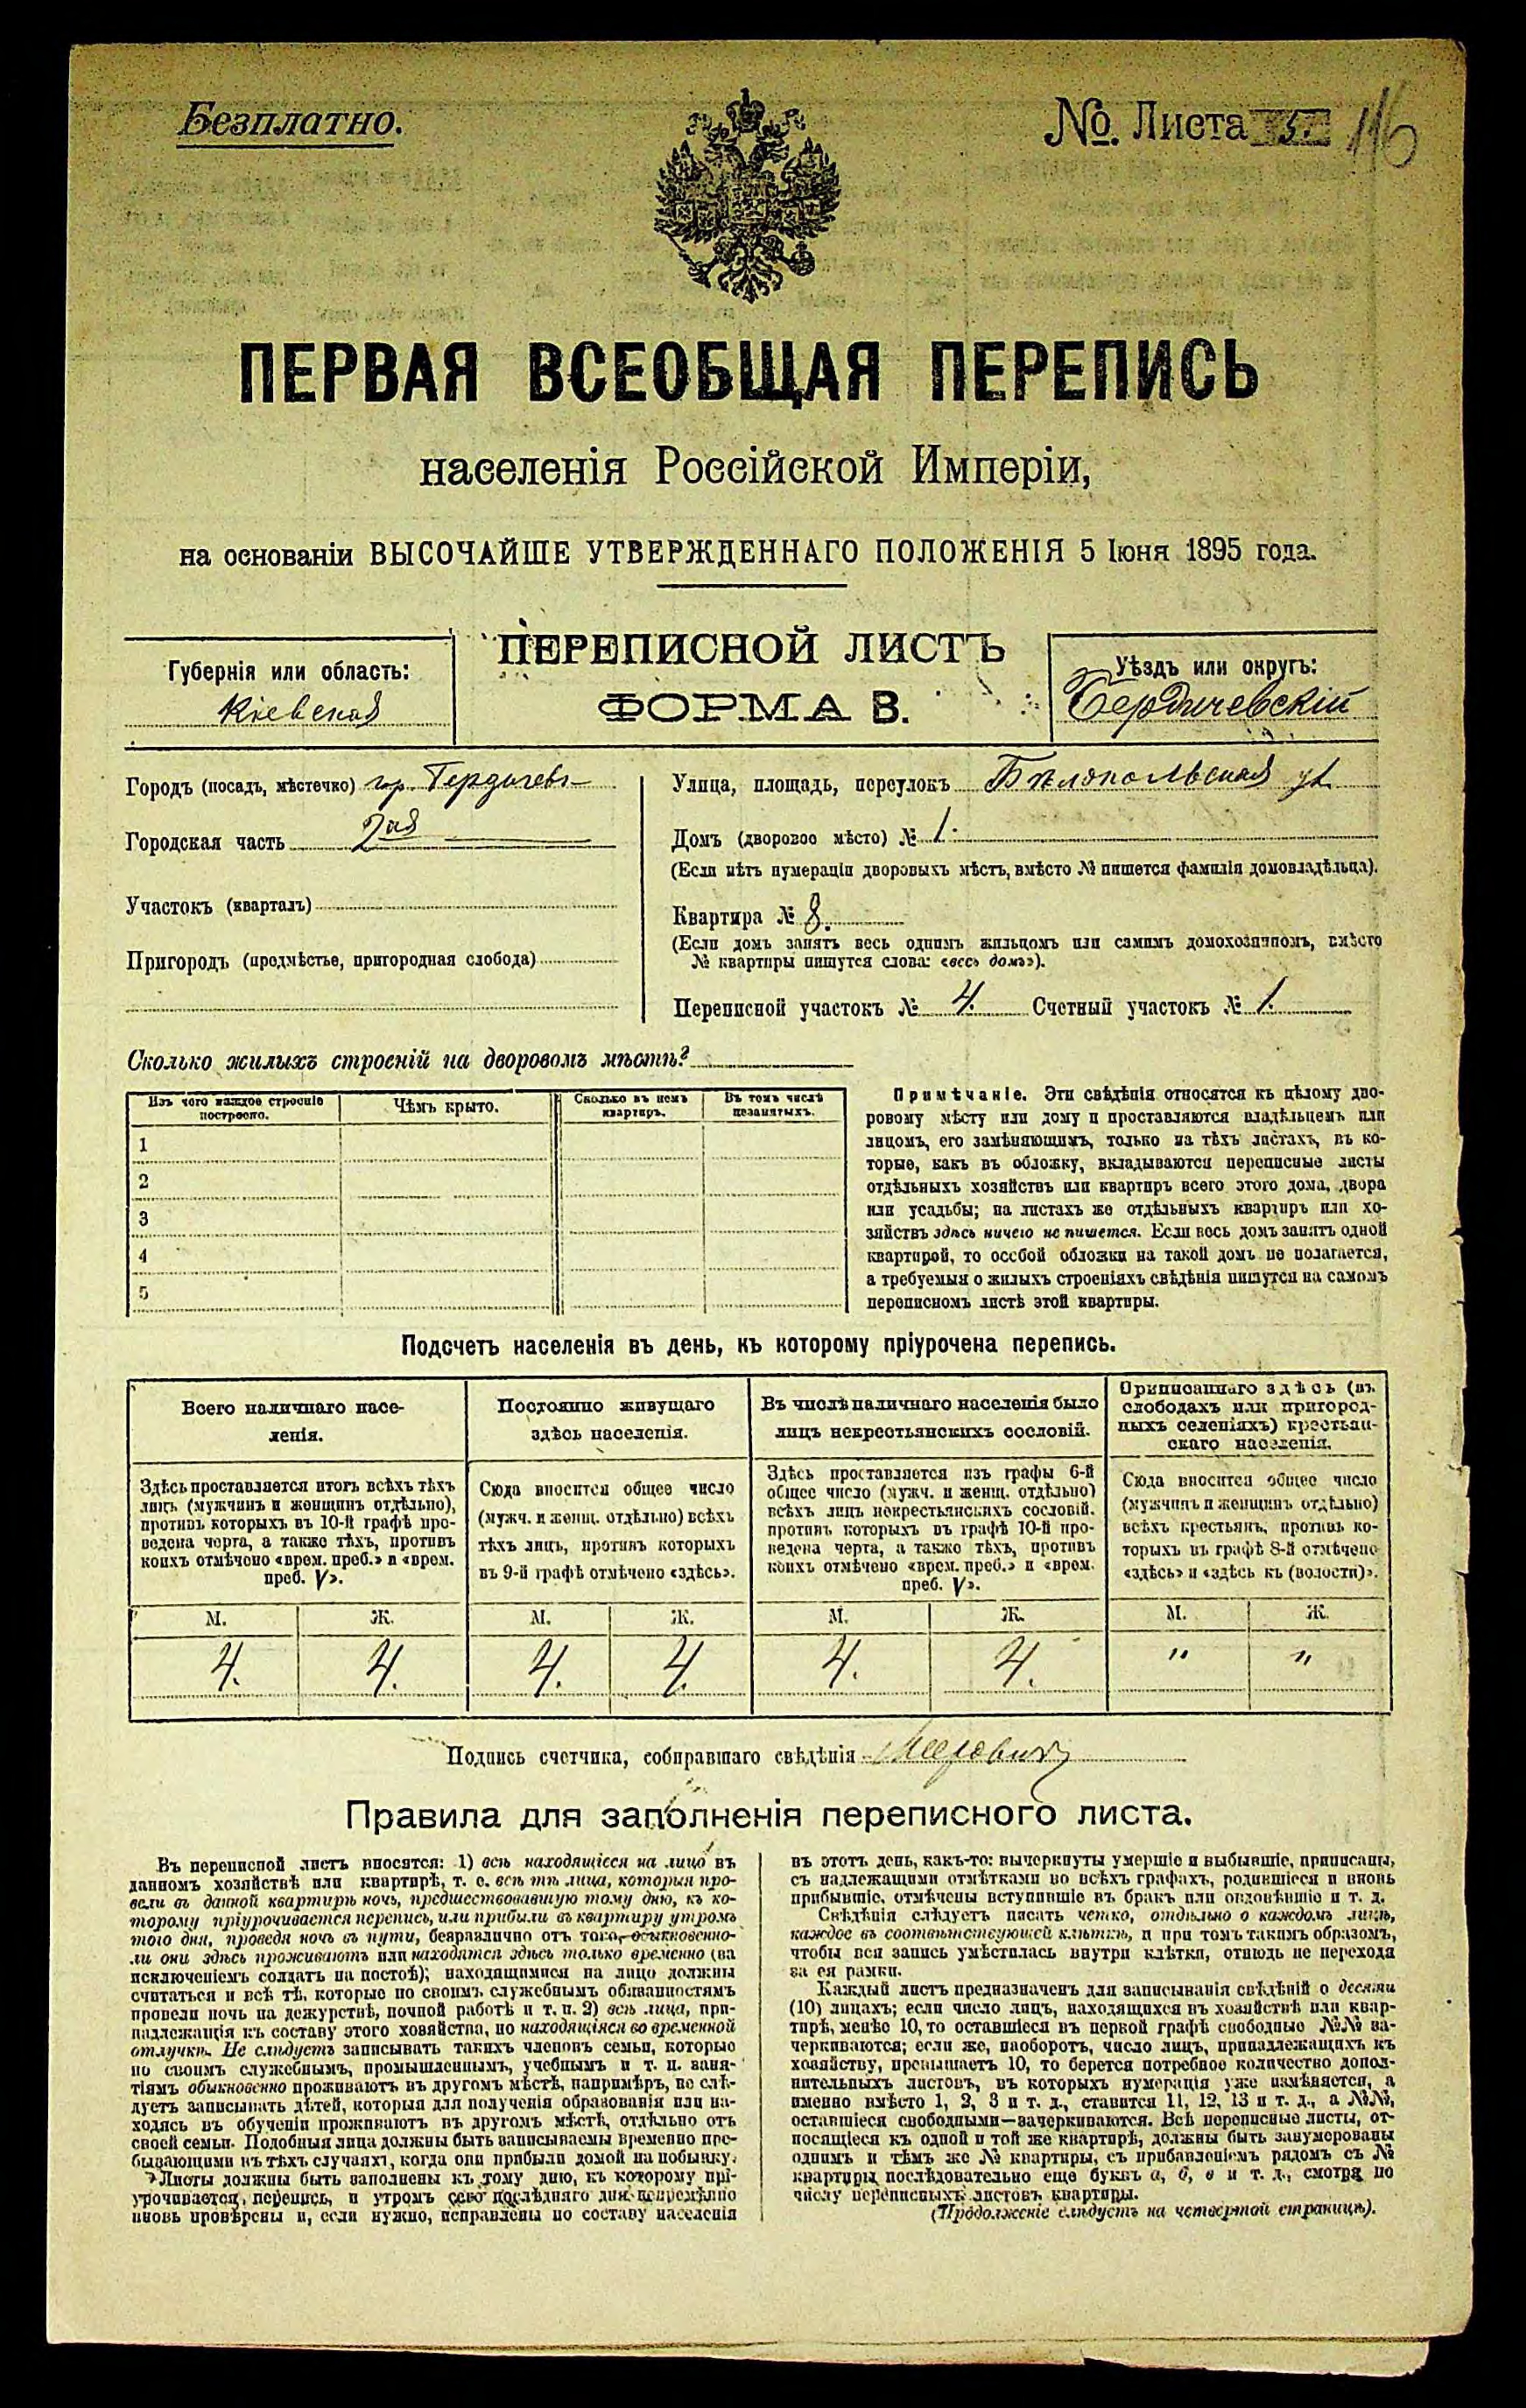 Безплатно.
№. Листа 5. 116
ПЕРВАЯ ВСЕОБЩАЯ ПЕРЕПИСЬ
населенія Россійской Имперіи,
на основаніи ВЫСОЧАЙШЕ УТВЕРЖДЕННАГО ПОЛОЖЕНІЯ 5 Іюня 1895 года.
Губернія или область:
Кіевская
ПЕРЕПИСНОЙ ЛИСТЪ
ФОРМА В.
Уѣздъ или округъ:
Бердичевскій
Городъ (посадъ, мѣстечко) гор. Бердичевъ
Городская часть 2ая
Участокъ (кварталъ)
Пригородъ (предмѣстье, пригородная слобода)
Улица, площадь, переулокъ Бѣлопольская ул.
Домъ (дворовое мѣсто) № 1.
(Если нѣтъ нумераціи дворовыхъ мѣстъ, вмѣсто № пишется фамилія домовладѣльца).
Квартира № 8.
(Если домъ занятъ весь однимъ жильцомъ или самимъ домохозяиномъ, вмѣсто
№ квартиры пишутся слова: «весь домъ»).
Переписной участокъ № 4. Счетный участокъ № 1.
Сколько жилыхъ строеній на дворовомъ мѣстѣ?
Изъ чего каждое строеніе
построено.
Чѣмъ крыто.
Сколько въ немъ
квартиръ.
Въ томъ числѣ
незанятыхъ.
1
2
3
4
5
Примѣчаніе. Эти свѣдѣнія относятся къ цѣлому дво-
ровому мѣсту или дому и проставляются владѣльцемъ или
лицомъ, его замѣняющимъ, только на тѣхъ листахъ, въ ко-
торые, какъ въ обложку, вкладываются переписные листы
отдѣльныхъ хозяйствъ или квартиръ всего этого дома, двора
или усадьбы; на листахъ же отдѣльныхъ квартиръ или хо-
зяйствъ здѣсь ничего не пишется. Если весь домъ занятъ одной
квартирой, то особой обложки на такой домъ не полагается,
а требуемыя о жилыхъ строеніяхъ свѣдѣнія пишутся на самомъ
переписномъ листѣ этой квартиры.
Подсчетъ населенія въ день, къ которому пріурочена перепись.
Всего наличнаго насе-
ленія.
Здѣсь проставляется итогъ всѣхъ тѣхъ
лицъ (мужчинъ и женщинъ отдѣльно),
противъ которыхъ въ 10-й графѣ про-
ведена черта, а также тѣхъ, противъ
коихъ отмѣчено «врем. преб.» и «врем.
преб. V».
М. Ж.
4. 4.
Постоянно живущаго
здѣсь населенія.
Сюда вносится общее число
(мужч. и женщ. отдѣльно) всѣхъ
тѣхъ лицъ, противъ которыхъ
въ 9-й графѣ отмѣчено «здѣсь».
М. Ж.
4. 4.
Въ числѣ наличнаго населенія было
лицъ некрестьянскихъ сословій.
Здѣсь проставляется изъ графы 6-й
общее число (мужч. и женщ. отдѣльно)
всѣхъ лицъ некрестьянскихъ сословій.
противъ которыхъ въ графѣ 10-й про-
ведена черта, а также тѣхъ, противъ
коихъ отмѣчено «врем. преб.» и «врем.
преб. V».
М. Ж.
4. 4.
Приписаннаго здѣсь (въ
слободахъ или пригород-
ныхъ селеніяхъ) крестьян-
скаго населенія.
Сюда вносится общее число
(мужчинъ и женщинъ отдѣльно)
всѣхъ крестьянъ, противъ ко-
торыхъ въ графѣ 8-й отмѣчено
«здѣсь» и «здѣсь къ (волости)».
М. Ж.
" "
Подпись счетчика, собиравшаго свѣдѣнія
Правила для заполненія переписного листа.
Въ переписной листъ вносятся: 1) всѣ находящіеся на лицо въ
данномъ хозяйствѣ или квартирѣ, т. е. всѣ тѣ лица, которыя про-
вели въ данной квартирѣ ночь, предшествовавшую тому дню, къ ко-
торому пріурочивается перепись, или прибыли въ квартиру утромъ
того дня, проведя ночь въ пути, безразлично отъ того, обыкновенно-
ли они здѣсь проживаютъ или находятся здѣсь только временно (за
исключеніемъ солдатъ на постоѣ); находящимися на лицо должны
считаться и всѣ тѣ, которые по своимъ служебнымъ обязанностямъ
провели ночь на дежурствѣ, ночной работѣ и т. п. 2) всѣ лица, при-
надлежащія къ составу этого хозяйства, но находящіяся во временной
отлучкѣ. Не слѣдуетъ записывать такихъ членовъ семьи, которые
по своимъ служебнымъ, промышленнымъ, учебнымъ и т. п. заня-
тіямъ обыкновенно проживаютъ въ другомъ мѣстѣ, напримѣръ, не слѣ-
дуетъ записывать дѣтей, которыя для полученія образованія или на-
ходясь въ обученіи проживаютъ въ другомъ мѣстѣ, отдѣльно отъ
своей семьи. Подобныя лица должны быть записываемы временно пре-
бывающими въ тѣхъ случаяхъ, когда они прибыли домой на побывку.
Листы должны быть заполнены къ тому дню, къ которому прі-
урочивается перепись, и утромъ сего послѣдняго дня непремѣнно
вновь провѣрены и, если нужно, исправлены по составу населенія
въ этотъ день, какъ-то: вычеркнуты умершіе и выбывшіе, приписаны,
съ надлежащими отмѣтками во всѣхъ графахъ, родившіеся и вновь
прибывшіе, отмѣчены вступившіе въ бракъ или овдовѣвшіе и т. д.
Свѣдѣнія слѣдуетъ писать четко, отдѣльно о каждомъ лицѣ,
каждое въ соотвѣтствующей клѣткѣ, и при томъ такимъ образомъ,
чтобы вся запись умѣстилась внутри клѣтки, отнюдь не переходя
за ея рамки.
Каждый листъ предназначенъ для записыванія свѣдѣній о десяти
(10) лицахъ; если число лицъ, находящихся въ хозяйствѣ или квар-
тирѣ, менѣе 10, то оставшіеся въ первой графѣ свободные №№ за-
черкиваются; если же, наоборотъ, число лицъ, принадлежащихъ къ
хозяйству, превышаетъ 10, то берется потребное количество допол-
нительныхъ листовъ, въ которыхъ нумерація уже измѣняется, а
именно вмѣсто 1, 2, 3 и т. д., ставится 11, 12, 13 и т. д., а №№,
оставшіеся свободными—зачеркиваются. Всѣ переписные листы, от-
носящіеся къ одной и той же квартирѣ, должны быть занумерованы
однимъ и тѣмъ же № квартиры, съ прибавленіемъ рядомъ съ №
квартиры послѣдовательно еще буквъ а, б, в и т. д., смотря по
числу переписныхъ листовъ квартиры.
(Продолженіе слѣдуетъ на четвертой страницѣ).